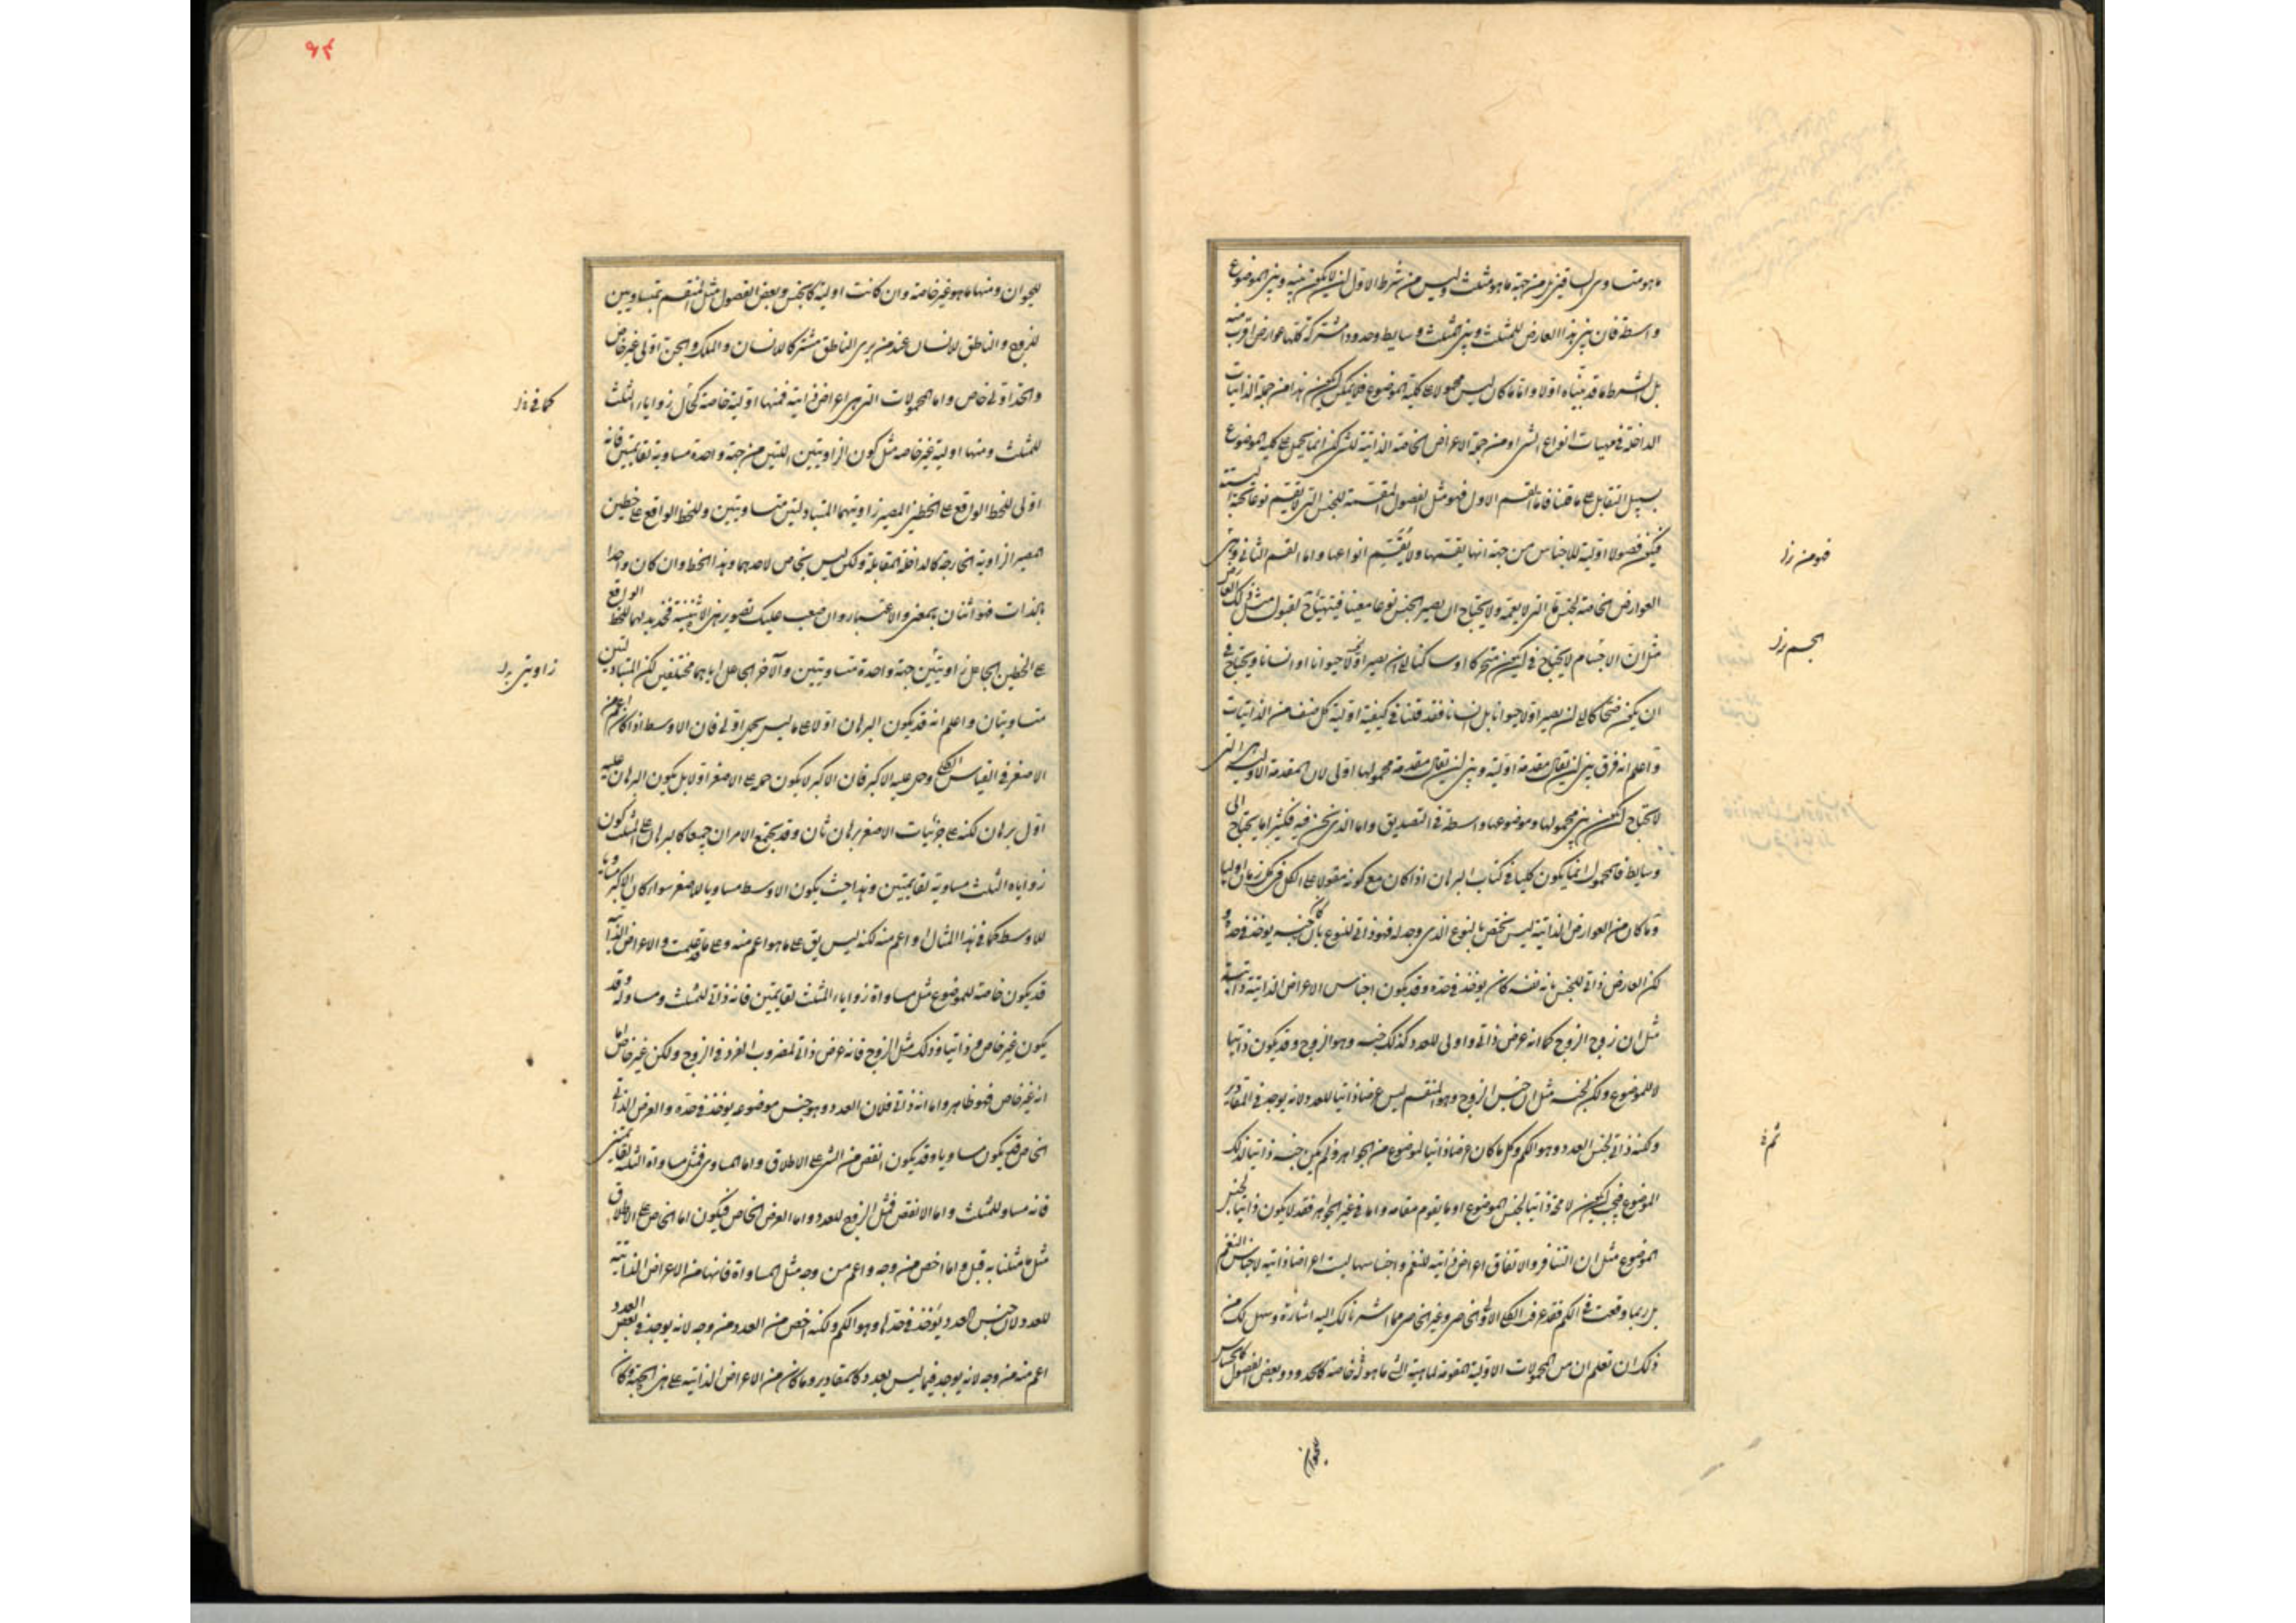 ما هو متساوى الساقين بل من جهة ما هو مثلث وليس من شرط الاول ان لا يكون بينه وبين الموضوع
واسطة فان بين هذا العارض للمثلث وبين المثلث وسايط وحدود مشتركة كلها عوارض اقرب منه
بل الشرط ما قد بيناه اولا واما ما كان ليس محمولا على كلية الموضوع فلا يمكن ان يكون هذا من جملة الذاتيات
الداخلة فى مهيات انواع الشى او من جملة الاعراض الخاصة الذاتية لشى لكن انما يحمل على كلية الموضوع
سبيل التقابل على ما قلنا فاما القسم الاول فهو مثل الفصول المقسمة للجنس التى لا تقسم نوعا تحته البتة
فيكون فصولا اولية للاجناس من جهة انها يقسمها ولا تقسم انواعها واما القسم الثانى وهى
العوارض الخاصة بجنس ما التى لا يعمه ولا يحتاج ان يصير الجنس نوعا معينا فيتهيأ لقبول مثل ذلك العارض
مثل ان الاجسام لا يحتاج فى ان يكون متحركا او ساكنا الى ان يصير اولا حيوانا او انسانا ويحتاج فى
ان يكون ضحاكا الى ان يصير اولا حيوانا بل انسانا فقد قلنا فى كيفية اولية كل صنف من الذاتيات
واعلم انه فرق بين ان يقال مقدمة اولية وبين ان يقال مقدمة محمولها اولى لان المقدمة الاولية هى التى
لا يحتاج ان يكون بين محمولها وموضوعها واسطة فى التصديق واما الذى نحن فيه فكثيرا ما يحتاج الى
وسايط فالمحمول انما يكون كليا فى كتاب البرهان اذا كان مع كونه مقولا على الكل فى كل زمان اوليا
وما كان من العوارض الذاتية ليس يختص بالنوع الذى وجد له فهو ذاتى للنوع بان كان جنسه يوخذ فى حده و
لكن العارض ذاتى للجنس بانه نفسه كان يوخذ فى حده وقد يكون اجناس الاعراض الذاتية ذاتية
مثل ان زوج الزوج كما انه عرض ذاتى واولى للعدد كذلك جنسه وهو الزوج وقد يكون ذاتيا
لا للموضوع ولكن لجنسه مثل ان جنس الزوج وهو المنقسم ليس عرضا ذاتيا للعدد لانه يوجد فى المقادير
ولكنه ذاتى لجنس العدد وهو الكم وكل ما كان عرضا ذاتيا لموضوع من الجواهر ولم يكن جنسه ذاتيا لذلك
الموضوع فيجب ان يكون لا محة ذاتيا لجنس الموضوع او ما يقوم مقامه واما فى غير الجواهر فقد لا يكون ذاتيا لجنس
الموضوع مثل ان التنافر والاتفاق اعراض ذاتية للنغم واجناسها ليست اعراضا ذاتية لاجناس النغم
بل ربما وقعت فى الكم فقد عرف الكلى الاولى الخاص وغير الخاص مما اشرنا لك اليه اشارة وسهل لك من
ذلك ان تعلم ان من المحمولات الاولية المقومة لماهية الشى ما هو له خاصة كالحدود وبعض الفصول كالحساس
فهو من رزا
الجسم رزا
ثم ة
للحيوان
للحيوان ومنها ما هو غير خاصة وان كانت اولية كالجنس وبعض الفصول مثل المنقسم بمتساويين
للزوج والناطق للانسان عند من يرى الناطق مشتركا للانسان والملك والجن اولى غير خاص
والحد اولى خاص واما المحمولات التى هى اعراض ذاتية فمنها اولية خاصة كحال زوايا المثلث
للمثلث ومنها اولية غير خاصة مثل كون الزاويتين اللتين من جهة واحدة مساوية لقايمتين فانه
اولى للخط الواقع على الخطين المصير زاويتهما المتبادلتين متساويتين وللخط الواقع على خطين
المصير الزاوية الخارجة كالداخلة المقابلة ولكن ليس بخاص لاحدهما وهذا الخط وان كان واحدا
بالذات فهو اثنان بالمعنى والاعتبار وان صعب عليك تصوير هذى الاثنينية فخذ بدلهما للخط الواقع
على الخطين الجاعل زاويتين جهة واحدة متساويتين والآخر الجاعل اياهما مختلفين لكن المتبادلتين
متساويتان واعلم انه قد يكون البرهان اولا على ما ليس بحمل اولى فان الاوسط اذا كان اعم من
الاصغر فى القياس الكلى وحمل عليه الاكبر فان الاكبر لا يكون حمله على الاصغر اولا بل يكون البرهان عليه
اول برهان لكنه على جزئيات الاصغر برهان ثان وقد يجتمع الامران جميعا كالبرهان على المثلث كون
زواياه الثلث مساوية لقايمتين وهذا حيث يكون الاوسط مساويا للاصغر سوا كان الاكبر مساويا
للاوسط كما فى هذا المثال او اعم منه لكنه ليس يق على ما هو اعم منه وعلى ما قد علمت والاعراض الذاتية
قد يكون خاصة للموضوع مثل مساواة زوايا المثلث لقايمتين فانه ذاتى للمثلث ومساو له وقد
يكون غير خاص وذاتيا وذلك مثل الزوج فانه عرض ذاتى لمضروب الفرد فى الزوج ولكن غير خاص اما
انه غير خاص فهو ظاهر واما انه ذاتى فلان العدد وهو جنس موضوعه يوخذ فى حده والعرض الذاتى
الخاص قد يكون مساويا وقد يكون انقص من الشى على الاطلاق واما المساوى فمثل مساواة الثلثة لقايمتين
فانه مساو للمثلث واما الانقص فمثل الزوج للعدد واما العرض الخاص فيكون اما الخاص على الاطلاق
مثل ما مثلنا به قبل واما اخص من وجه واعم من وجه مثل المساواة فانها من الاعراض الذاتية
للعدد لان جنس العدد يوخذ فى حدها وهو الكم ولكنه اخص من العدد من وجه لانه يوجد فى بعض العدد
اعم منه من وجه لانه يوجد فيما ليس بعدد كالمقادير وما كان من الاعراض الذاتية على هذى الجهة وكان
كما فى ة رزا
زاويتى رزا